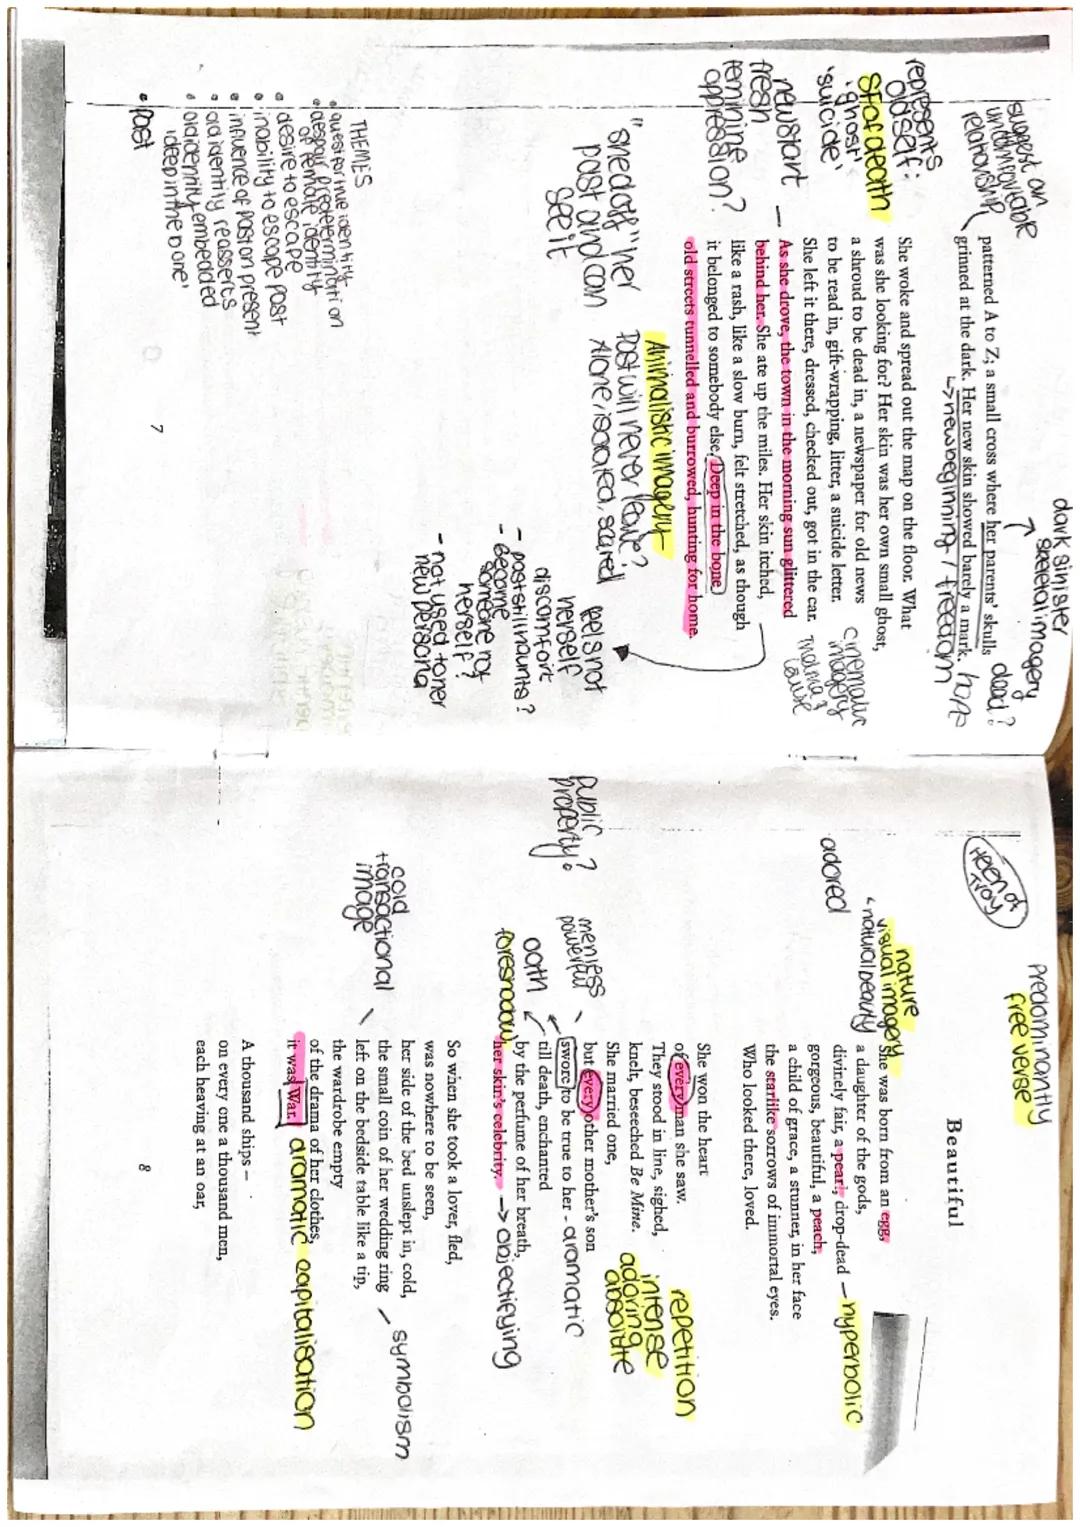 suggest an
uncomfortable
relationship
dark sinister
skeletal imagery
dead?
patterned A to Z; a small cross where her parents' skulls
grinned at the dark. Her new skin showed barely a mark.
hope
↳ new beginning / freedom
represents
old self:
SF of death
'ghost'
'suicide'
She woke and spread out the map on the floor. What
was she looking for? Her skin was her own small ghost,
a shroud to be dead in, a newspaper for old news
to be read in, gift-wrapping, litter, a suicide letter.
She left it there, dressed, checked out, got in the car.
As she drove, the town in the morning sun glittered
behind her. She ate up the miles. Her skin itched,
like a rash, like a slow burn, felt stretched, as though
it belonged to somebody else. Deep in the bone
old streets tunnelled and burrowed, hunting for home.
new start —
fresh
feminine
oppression?
cinematic
imagery
Thelma &
Louise
"shed off" her
past and can
see it
Animalistic imagery
Past will never leave?
Alone, isolated, scared
feels not
herself
discomfort
- past still haunts?
- become
someone not
herself?
- not used to her
new persona
THEMES
• quest for true identity
• despair predetermination
of female identity
• desire to escape
• inability to escape past
• influence of past on present
• old identity reasserts
• old identity embedded
'deep in the bone'
• Past
7
predominantly
free verse
Helen of
Troy
Beautiful
nature
visual imagery
natural beauty
adored
She was born from an egg,
a daughter of the gods,
divinely fair, a pearl, drop-dead
gorgeous, beautiful, a peach,
a child of grace, a stunner, in her face
the starlike sorrows of immortal eyes.
Who looked there, loved.
— hyperbolic
She won the heart
of every man she saw.
They stood in line, sighed,
knelt, beseeched Be Mine.
She married one,
but every other mother's son
swore to be true to her
till death, enchanted
by the perfume of her breath,
her skin's celebrity.
repetition
intense
adoring
absolute
- dramatic
→ objectifying
public
property?
men less
powerful
oath
foreshadow
So when she took a lover, fled,
was nowhere to be seen,
her side of the bed unslept in, cold,
the small coin of her wedding ring
left on the bedside table like a tip,
the wardrobe empty
of the drama of her clothes,
it was War.
cold
transactional
image
symbolism
dramatic capitalisation
A thousand ships –
on every one a thousand men,
each heaving at an oar,
8